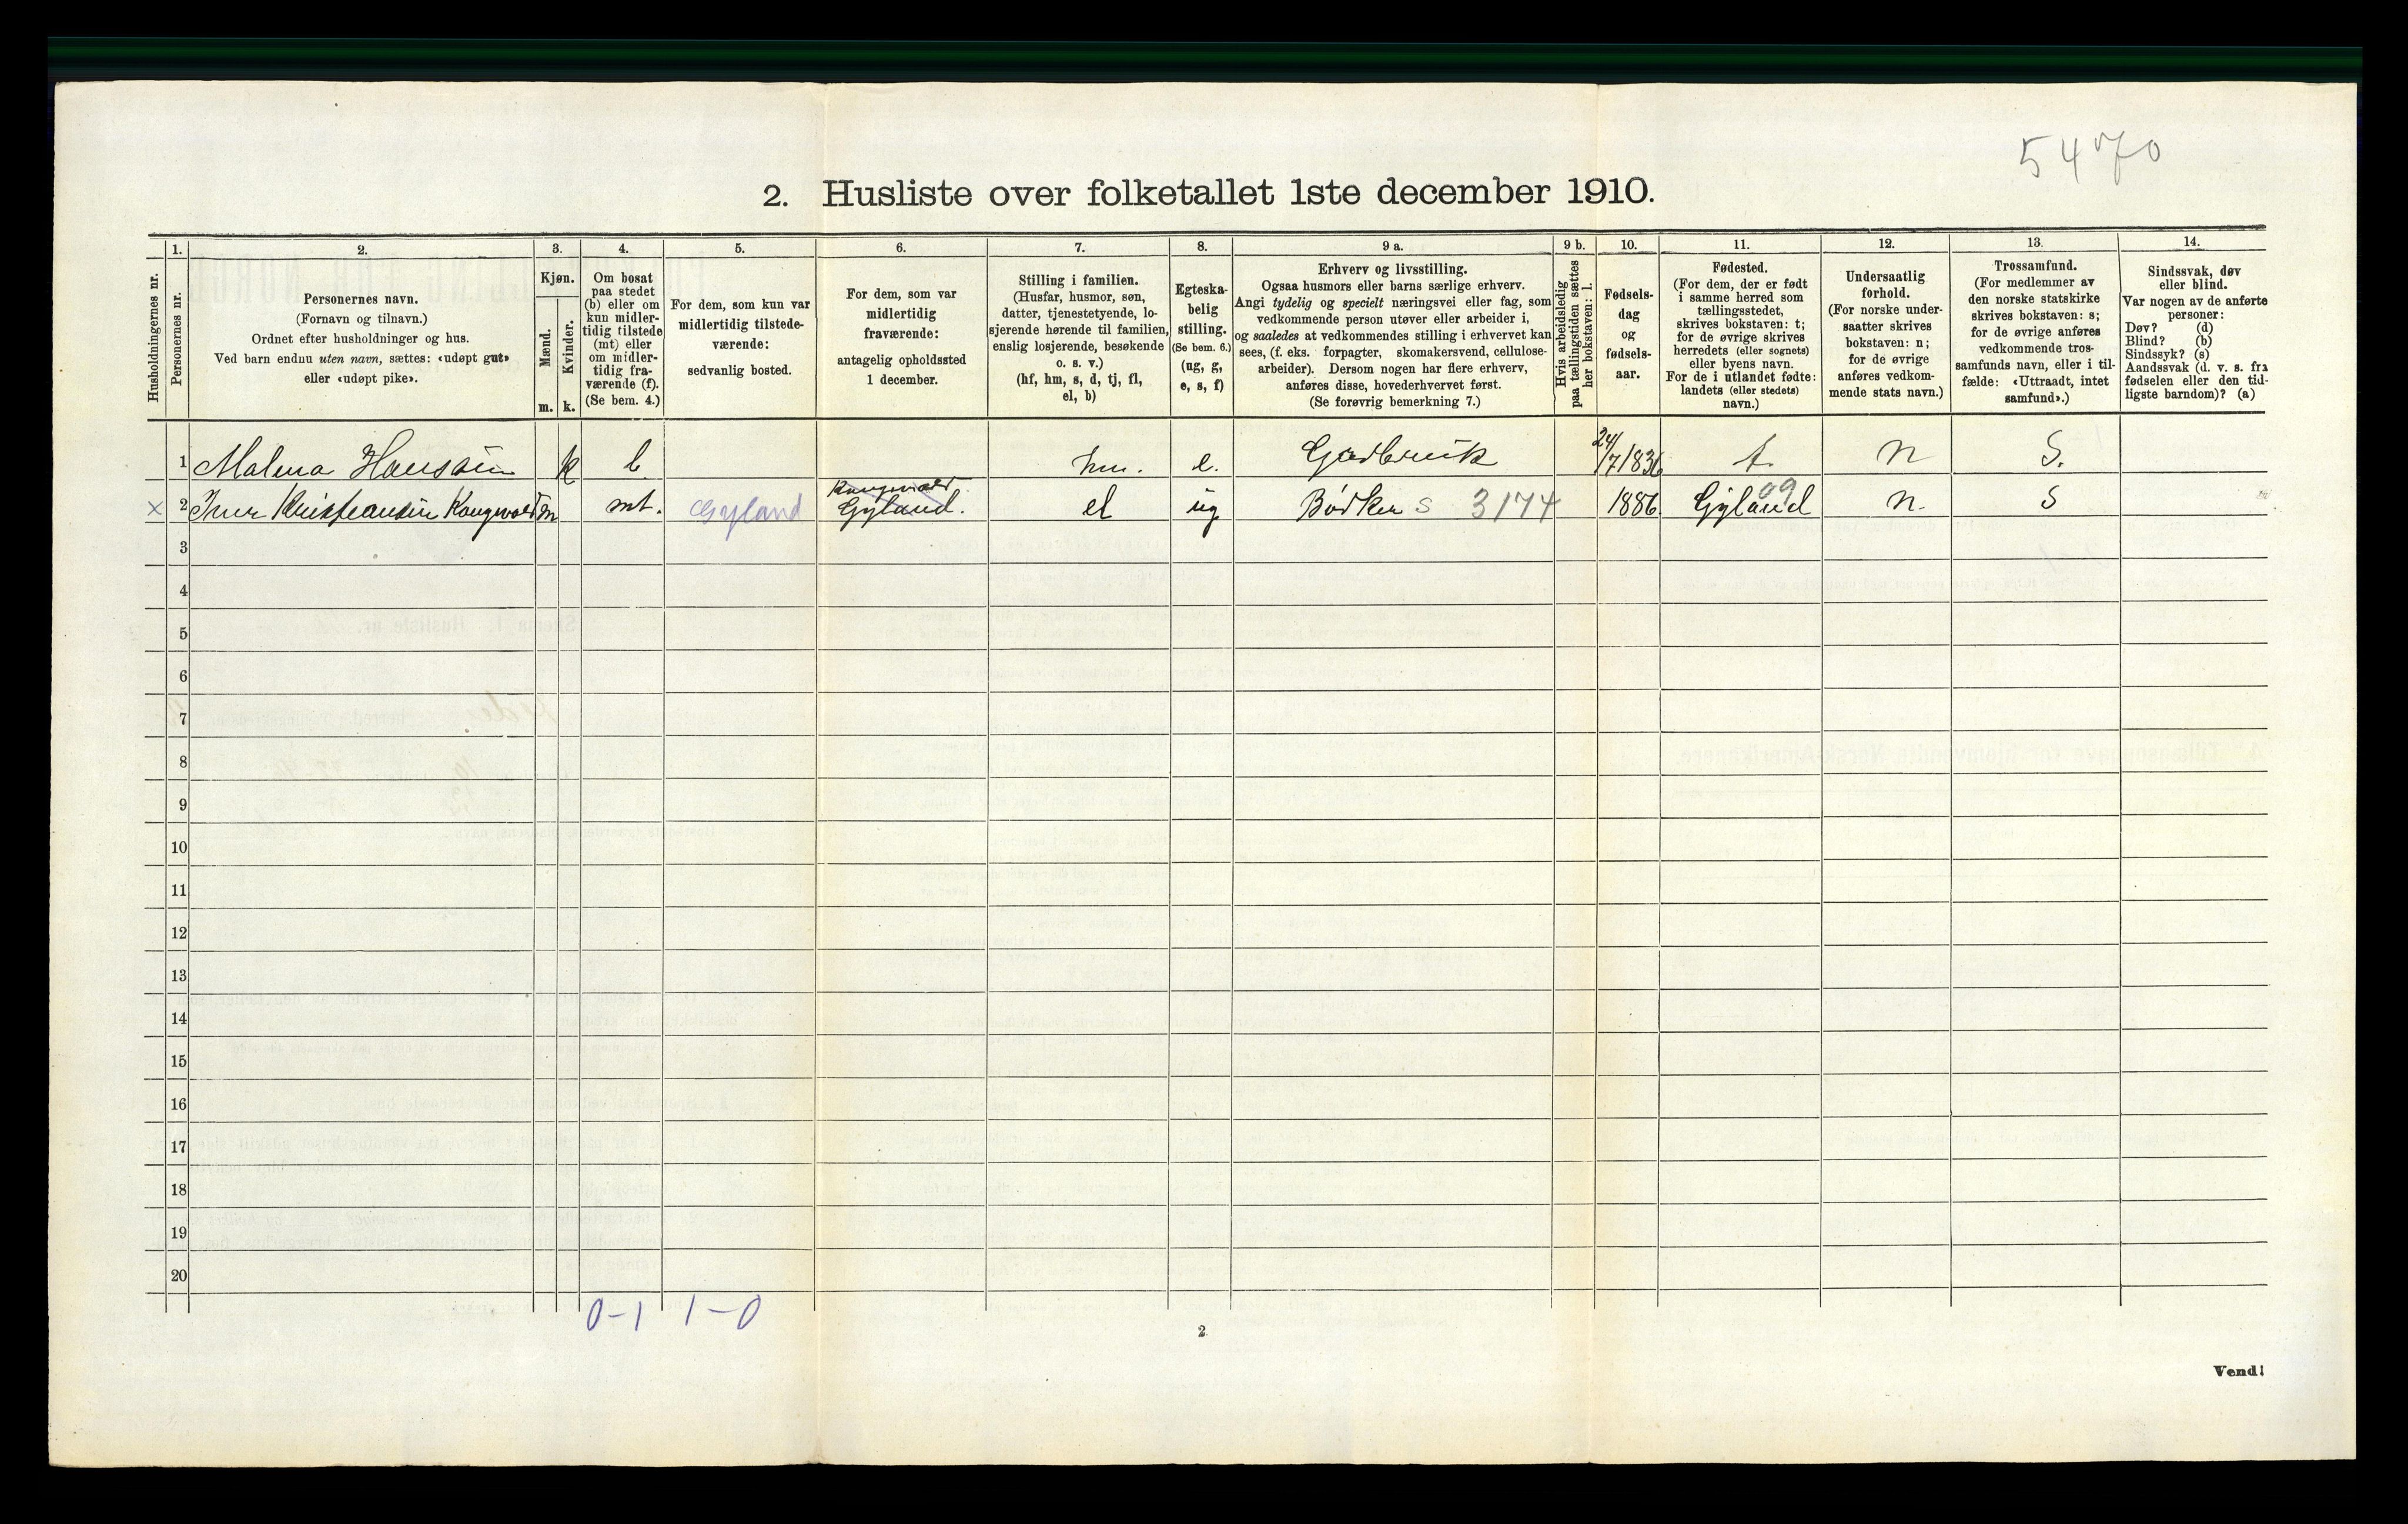 5470
2. Husliste over folketallet 1ste december 1910.
Husholdningernes nr.
1.
Personernes nr.
2.
Personernes navn.
(Fornavn og tilnavn.)
Ordnet efter husholdninger og hus.
Ved barn endnu uten navn, sættes: «udøpt gut»
eller «udøpt pike».
3.
Kjøn.
Mænd.
Kvinder.
m. k.
4.
Om bosat
paa stedet
(b) eller om
kun midler-
tidig tilstede
(mt) eller
om midler-
tidig fra-
værende (f).
(Se bem. 4.)
5.
For dem, som kun var
midlertidig tilstede-
værende:
sedvanlig bosted.
6.
For dem, som var
midlertidig
fraværende:
antagelig opholdssted
1 december.
7.
Stilling i familien.
(Husfar, husmor, søn,
datter, tjenestetyende, lo-
sjerende hørende til familien,
enslig losjerende, besøkende
o. s. v.)
(hf, hm, s, d, tj, fl,
el, b)
8.
Egteska-
belig
stilling.
(Se bem. 6.)
(ug, g,
e, s, f)
9 a.
Erhverv og livsstilling.
Ogsaa husmors eller barns særlige erhverv.
Angi tydelig og specielt næringsvei eller fag, som
vedkommende person utøver eller arbeider i,
og saaledes at vedkommendes stilling i erhvervet kan
sees, (f. eks. forpagter, skomakersvend, cellulose-
arbeider). Dersom nogen har flere erhverv,
anføres disse, hovederhvervet først.
(Se forøvrig bemerkning 7.)
9 b.
Hvis arbeidsledig
paa tællingstiden sættes
her bokstaven: l.
10.
Fødsels-
dag
og
fødsels-
aar.
11.
Fødested.
(For dem, der er født
i samme herred som
tællingsstedet,
skrives bokstaven: t;
for de øvrige skrives
herredets (eller sognets)
eller byens navn.
For de i utlandet fødte:
landets (eller stedets)
navn.)
12.
Undersaatlig
forhold.
(For norske under-
saatter skrives
bokstaven: n;
for de øvrige
anføres vedkom-
mende stats navn.)
13.
Trossamfund.
(For medlemmer av
den norske statskirke
skrives bokstaven: s;
for de øvrige anføres
vedkommende tros-
samfunds navn, eller i til-
fælde: «Uttraadt, intet
samfund».)
14.
Sindssvak, døv
eller blind.
Var nogen av de anførte
personer:
Døv? (d)
Blind? (b)
Sindssyk? (s)
Aandssvak (d. v. s. fra
fødselen eller den tid-
ligste barndom)? (a)
1 Malena Hansen k b hm. e. Gardbruk 24/7 1836 t. n S.
x 2 Iver Kristiansen Kongevold m mt. Gyland Kongevold Gyland. el ug Bødker S 3174 1886 Gyland 09 n. S
3
4
5
6
7
8
9
10
11
12
13
14
15
16
17
18
19
20
0-1 1-0
2
Vend!